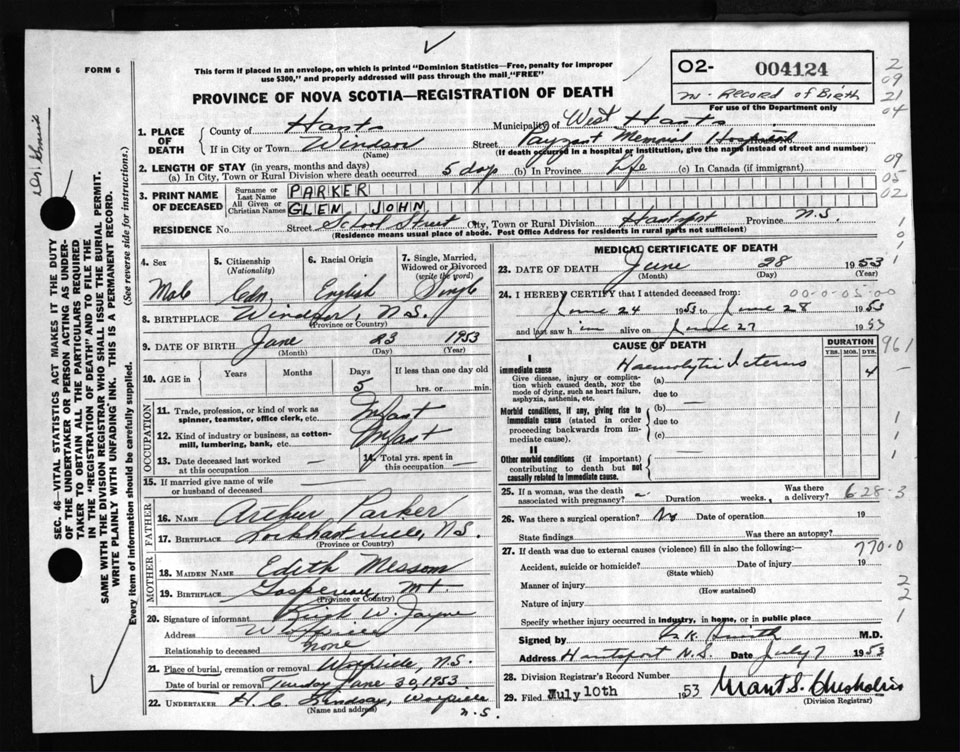 FORM 6
This form if placed in an envelope, on which is printed "Dominion Statistics—Free, penalty for improper
use $300," and properly addressed will pass through the mail "FREE"
PROVINCE OF NOVA SCOTIA—REGISTRATION OF DEATH
02- 004124
Record of Birth
For use of the Department only
2
09
21
04
09
05
02
SEC. 46—VITAL STATISTICS ACT MAKES IT THE DUTY
OF THE UNDERTAKER OR PERSON ACTING AS UNDER-
TAKER TO OBTAIN ALL THE PARTICULARS REQUIRED
IN THE "REGISTRATION OF DEATH" AND TO FILE THE
SAME WITH THE DIVISION REGISTRAR WHO SHALL ISSUE THE BURIAL PERMIT.
WRITE PLAINLY WITH UNFADING INK. THIS IS A PERMANENT RECORD.
Every item of information should be carefully supplied. (See reverse side for instructions.)
1. PLACE OF DEATH
County of Hants Municipality of West Hants
If in City or Town Windsor Street Payzant Memorial Hospital
(Name) (If death occurred in a hospital or institution, give the name instead of street and number)
2. LENGTH OF STAY (in years, months and days)
(a) In City, Town or Rural Division where death occurred 5 days (b) In Province Life (c) In Canada (if immigrant)
3. PRINT NAME OF DECEASED
Surname or Last Name PARKER
All Given or Christian Names GLEN JOHN
RESIDENCE No. Street School Street City, Town or Rural Division Hantsport Province N.S.
(Residence means usual place of abode. Post Office Address for residents in rural parts not sufficient)
4. Sex Male
5. Citizenship (Nationality) Cdn.
6. Racial Origin English
7. Single, Married, Widowed or Divorced (write the word) Single
8. BIRTHPLACE Windsor, N.S.
(Province or Country)
9. DATE OF BIRTH June 23 1953
(Month) (Day) (Year)
10. AGE in Years Months Days 5 If less than one day old hrs. or min.
OCCUPATION
11. Trade, profession, or kind of work as spinner, teamster, office clerk, etc. Infant
12. Kind of industry or business, as cotton-mill, lumbering, bank, etc. Infant
13. Date deceased last worked at this occupation —
14. Total yrs. spent in this occupation —
15. If married give name of wife or husband of deceased —
FATHER
16. NAME Arthur Parker
17. BIRTHPLACE Lockhartville, N.S.
(Province or Country)
MOTHER
18. MAIDEN NAME Edith Messom
19. BIRTHPLACE Gaspereau Mt.
(Province or Country)
20. Signature of informant W. Jayne
Address Wolfville
Relationship to deceased None
21. Place of burial, cremation or removal Wolfville, N.S.
Date of burial or removal Tuesday June 30, 1953
22. UNDERTAKER H. C. Lindsay, Wolfville
(Name and address) N.S.
MEDICAL CERTIFICATE OF DEATH
23. DATE OF DEATH June 28 1953
(Month) (Day) (Year)
24. I HEREBY CERTIFY that I attended deceased from: 00-0-05-00
June 24 1953 to June 28 1953
and last saw him alive on June 27 1953
CAUSE OF DEATH DURATION 961
YRS. MOS. DYS.
I
Immediate cause
Give disease, injury or complication which caused death, NOT the mode of dying, such as heart failure, asphyxia, asthenia, etc.
(a) Haemolytic Icterus 4
due to —
Morbid conditions, if any, giving rise to immediate cause (stated in order proceeding backwards from immediate cause).
(b)
due to —
(c)
II
Other morbid conditions (if important) contributing to death but not causally related to immediate cause.
25. If a woman, was the death associated with pregnancy? — Duration weeks. Was there a delivery? 6-28-3
26. Was there a surgical operation? No Date of operation 19
State findings Was there an autopsy?
27. If death was due to external causes (violence) fill in also the following:— 770.0
Accident, suicide or homicide? Date of injury 19
(State which)
Manner of injury
(How sustained)
Nature of injury
Specify whether injury occurred in industry, in home, or in public place
Signed by Smith M.D.
Address Hantsport N.S. Date July 7 1953
28. Division Registrar's Record Number
29. Filed July 10th 1953 Grant S. Chisholm
(Division Registrar)